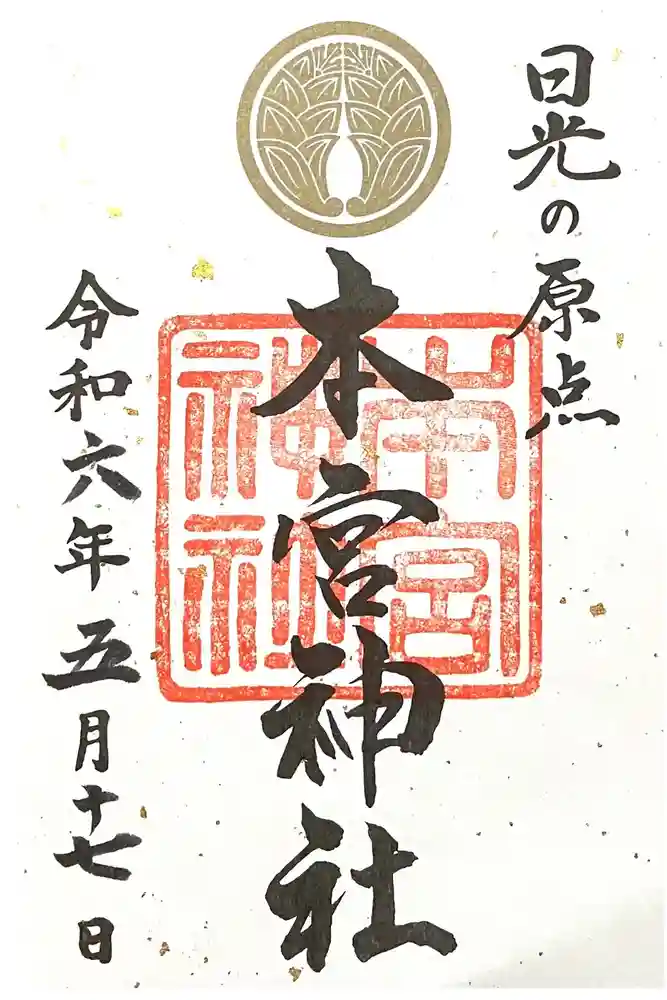 日光の原点
本宮神社
本宮神社
令和六年五月十七日